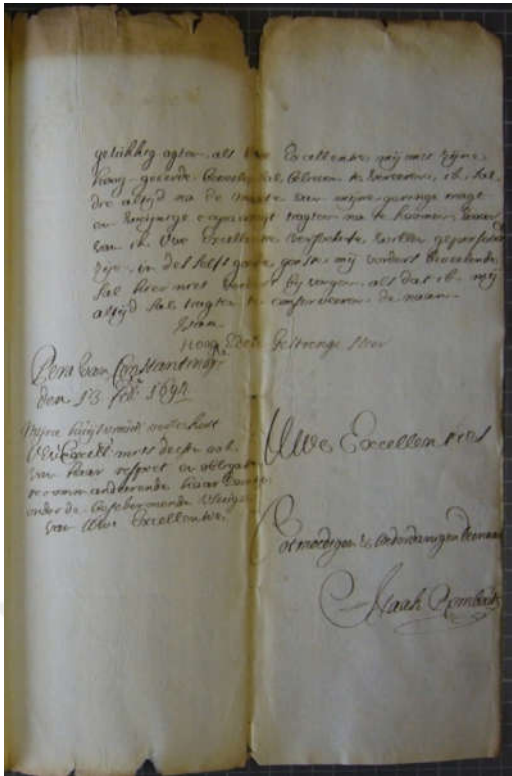 gelukkig agten, als Uwe Excellentie mij met zijne
hoog geeerde beveelen sal believen te vereeren, ik sal
die altijd na de maate van mijne geringe magt
en weijnige capaciteijt tragten na te koomen, waar
van ik Uwe Excellentie versoeke te willen gepersuad
zijn, in des selfs gunst mij vorders beveelende
sal hier niet verders bij voegen, als dat ik mij
altijd sal tragten te conserveeren de naam
van
Hoog Edele Gestrenge Heer
Pera van Constantinop
den 13 feb 1694
Mijne huijsvrouw
Uwe Excell met
van haar respect en obligatie
recommandeerende haar
onder de beschermende vleugels
van Uwe Excellentie.
Uwe Excellenties
Ootmoedigen &amp; dienaar
Isaak Rombouts